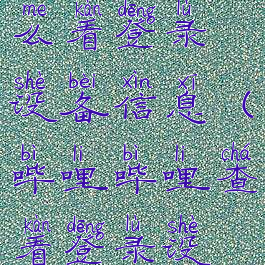 me kàn dēng lù
么看登录
shè bèi xìn xī
设备信息（
bì lī bì lī chá
哔哩哔哩查
kàn dēng lù shè
看登录设